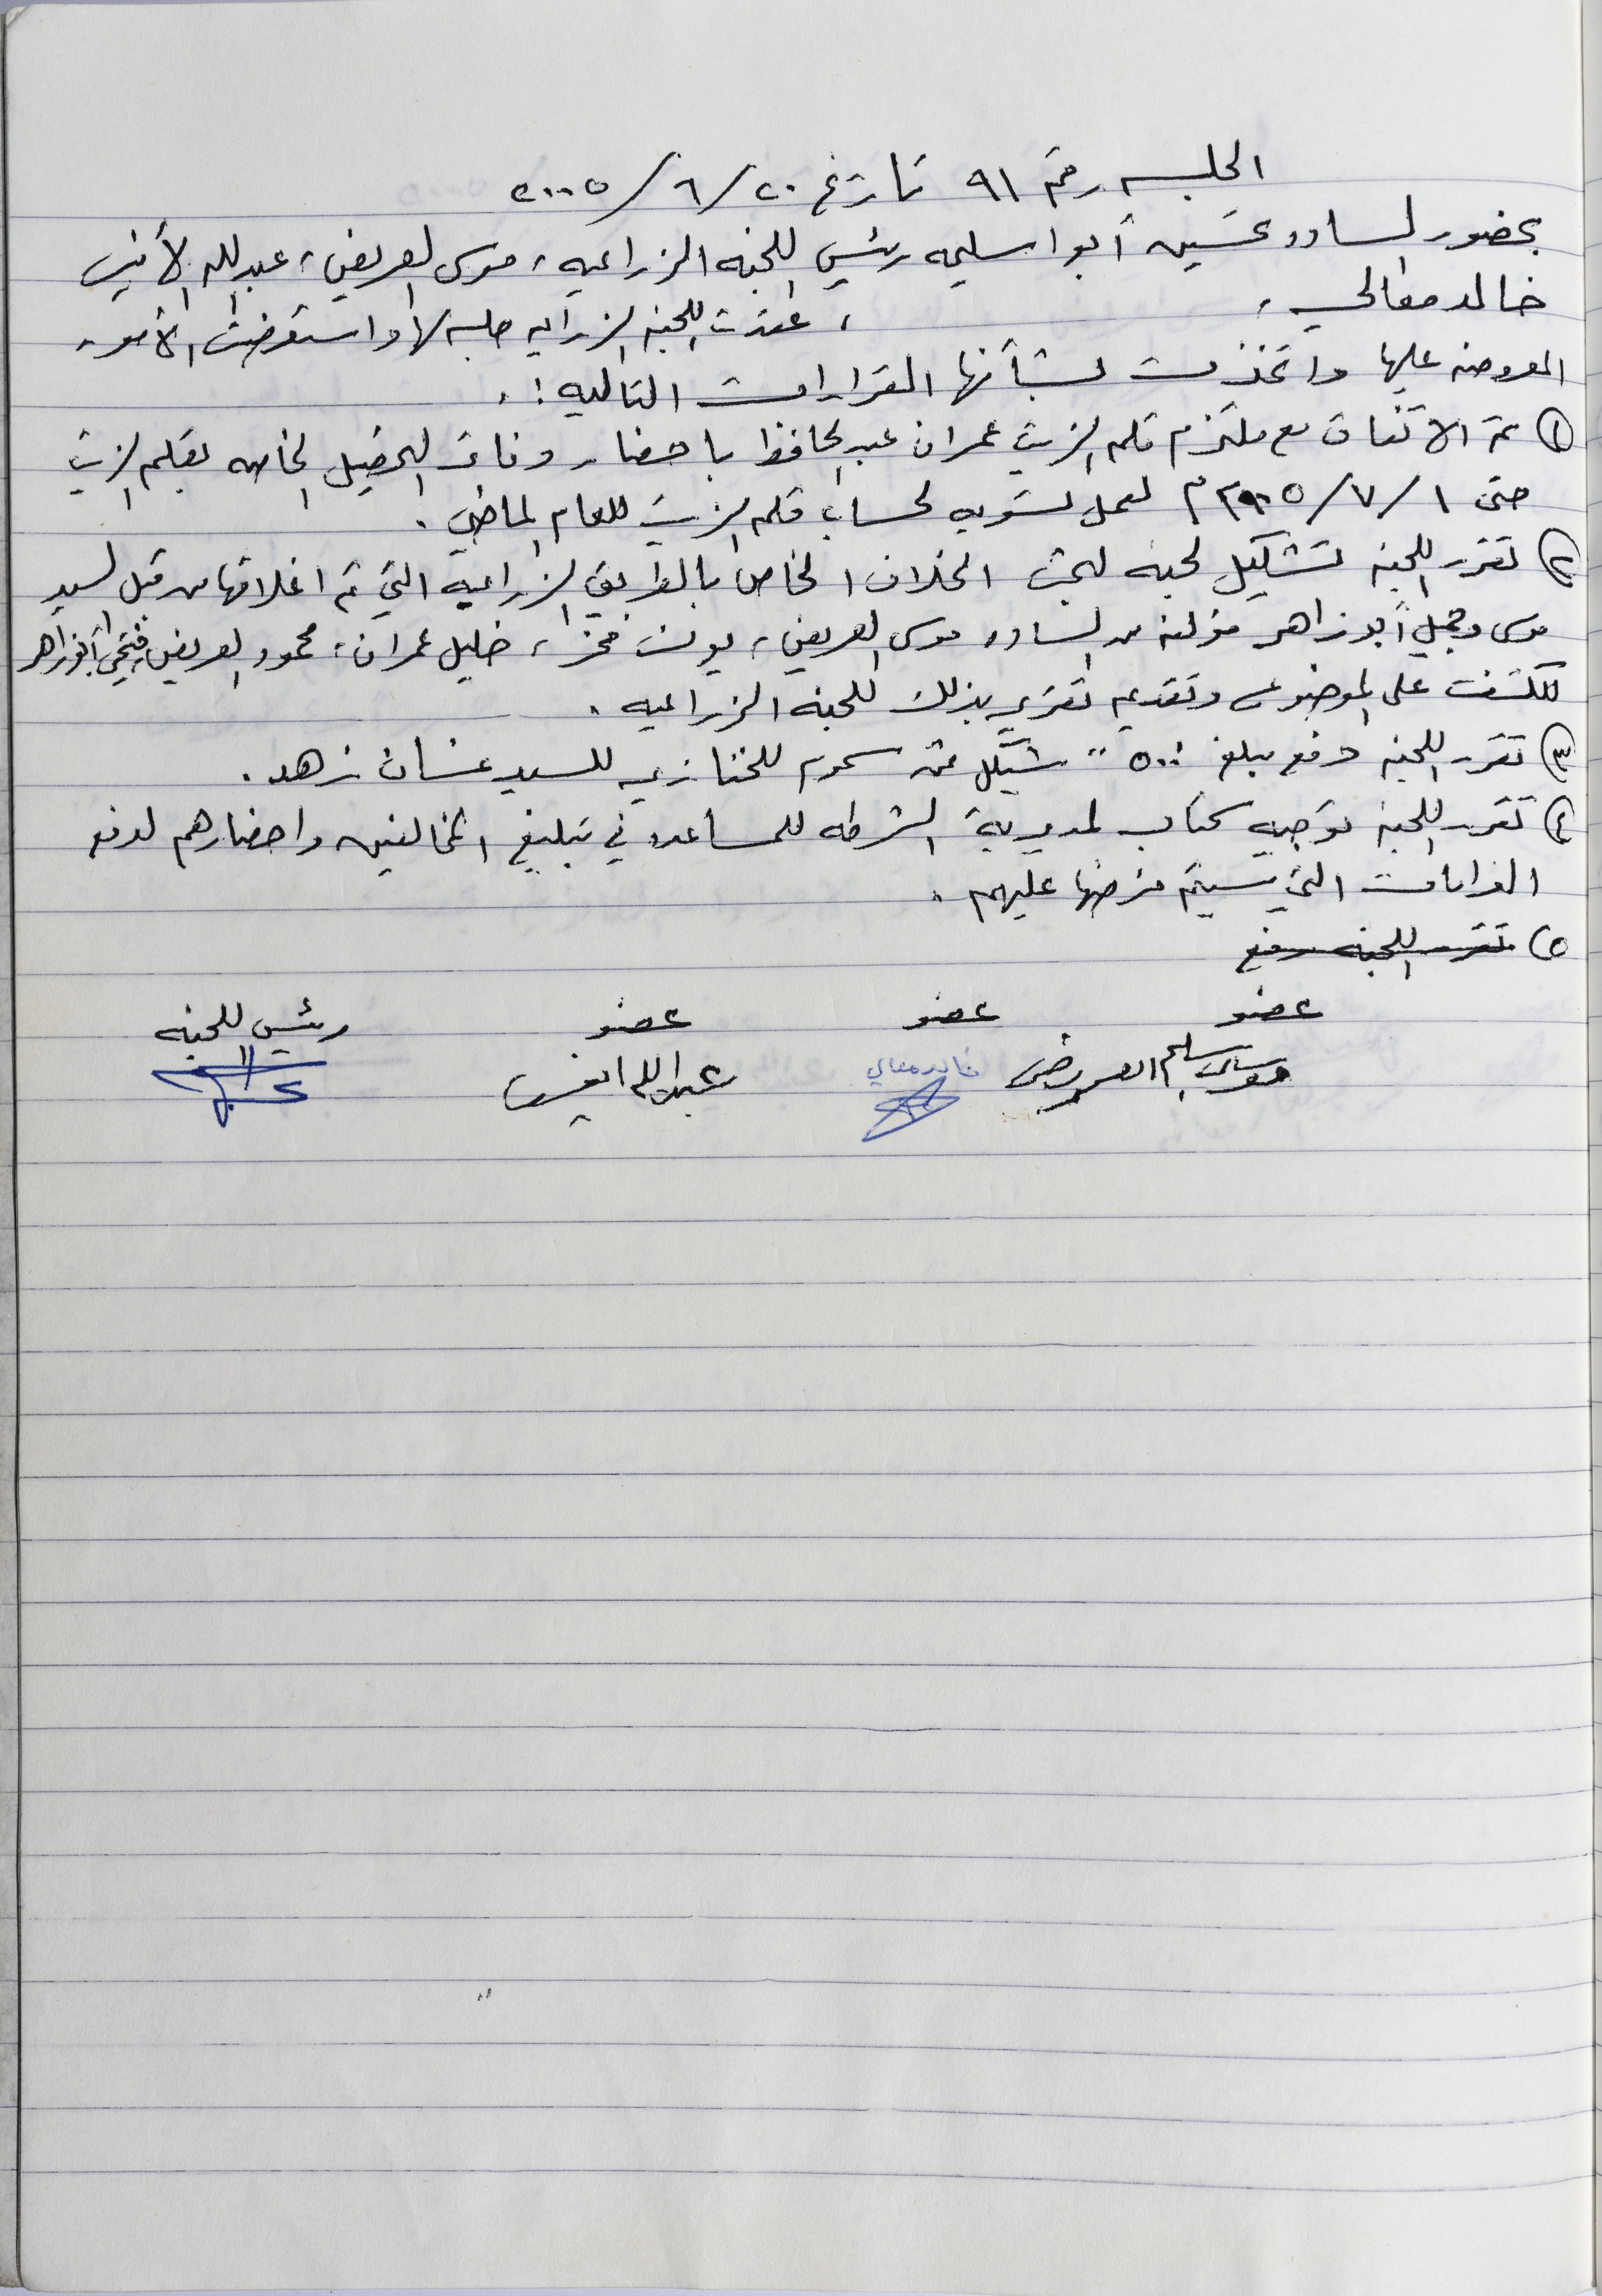 الجلسه رقم ٩١ تاريخ ٢٠/٦/٢٠٠٥
بحضور السادة تحسين أبوا سليمه رئيس اللجنه الزراعيه، موسى العريض، عبدالله الأنيس
خالد معالي، ، عقدت اللجنه الزراعيه جلسه لها واستعرضت الأمور
المعروضه عليها واتخذت بشأنها القرارات التاليه :.
١) تم الاتفاق مع ملتزم قلم الزيت عمران عبد الحافظ باحضار دفاتر التحصيل الخاصه بقلم الزيت
حتى ١/٧/٢٠٠٥ م لعمل تسويه لحساب قلم الزيت للعام الماضي.
٢) تقرر اللجنه تشكيل لجنه لبحث الخلاف الخاص بالطريق الزراعية التي تم اغلاقها من قبل السيد
موسى وجميل أبو زاهر مؤلفه من الساده موسى العريض، يونس، خليل عمران، محمود العريض، فتحي أبو زاهر
للكشف على الموضوع وتقديم تقرير بذلك للجنه الزراعيه.
٣) تقرر اللجنه دفع مبلغ ٥٠٠ شيكل ثمن سموم للخنازير للسيد غسان زهد.
٤) تقرر اللجنه توجيه كتاب لمديرية الشرطه للمساعده في تبليغ المخالفين واحضارهم لدفع
الغرامات التي سيتم فرضها عليهم.
٥) تقرر اللجنه دفع
عضو عضو عضو رئيس اللجنه
موسى سليم العريض خالد معالي عبدالله انيس